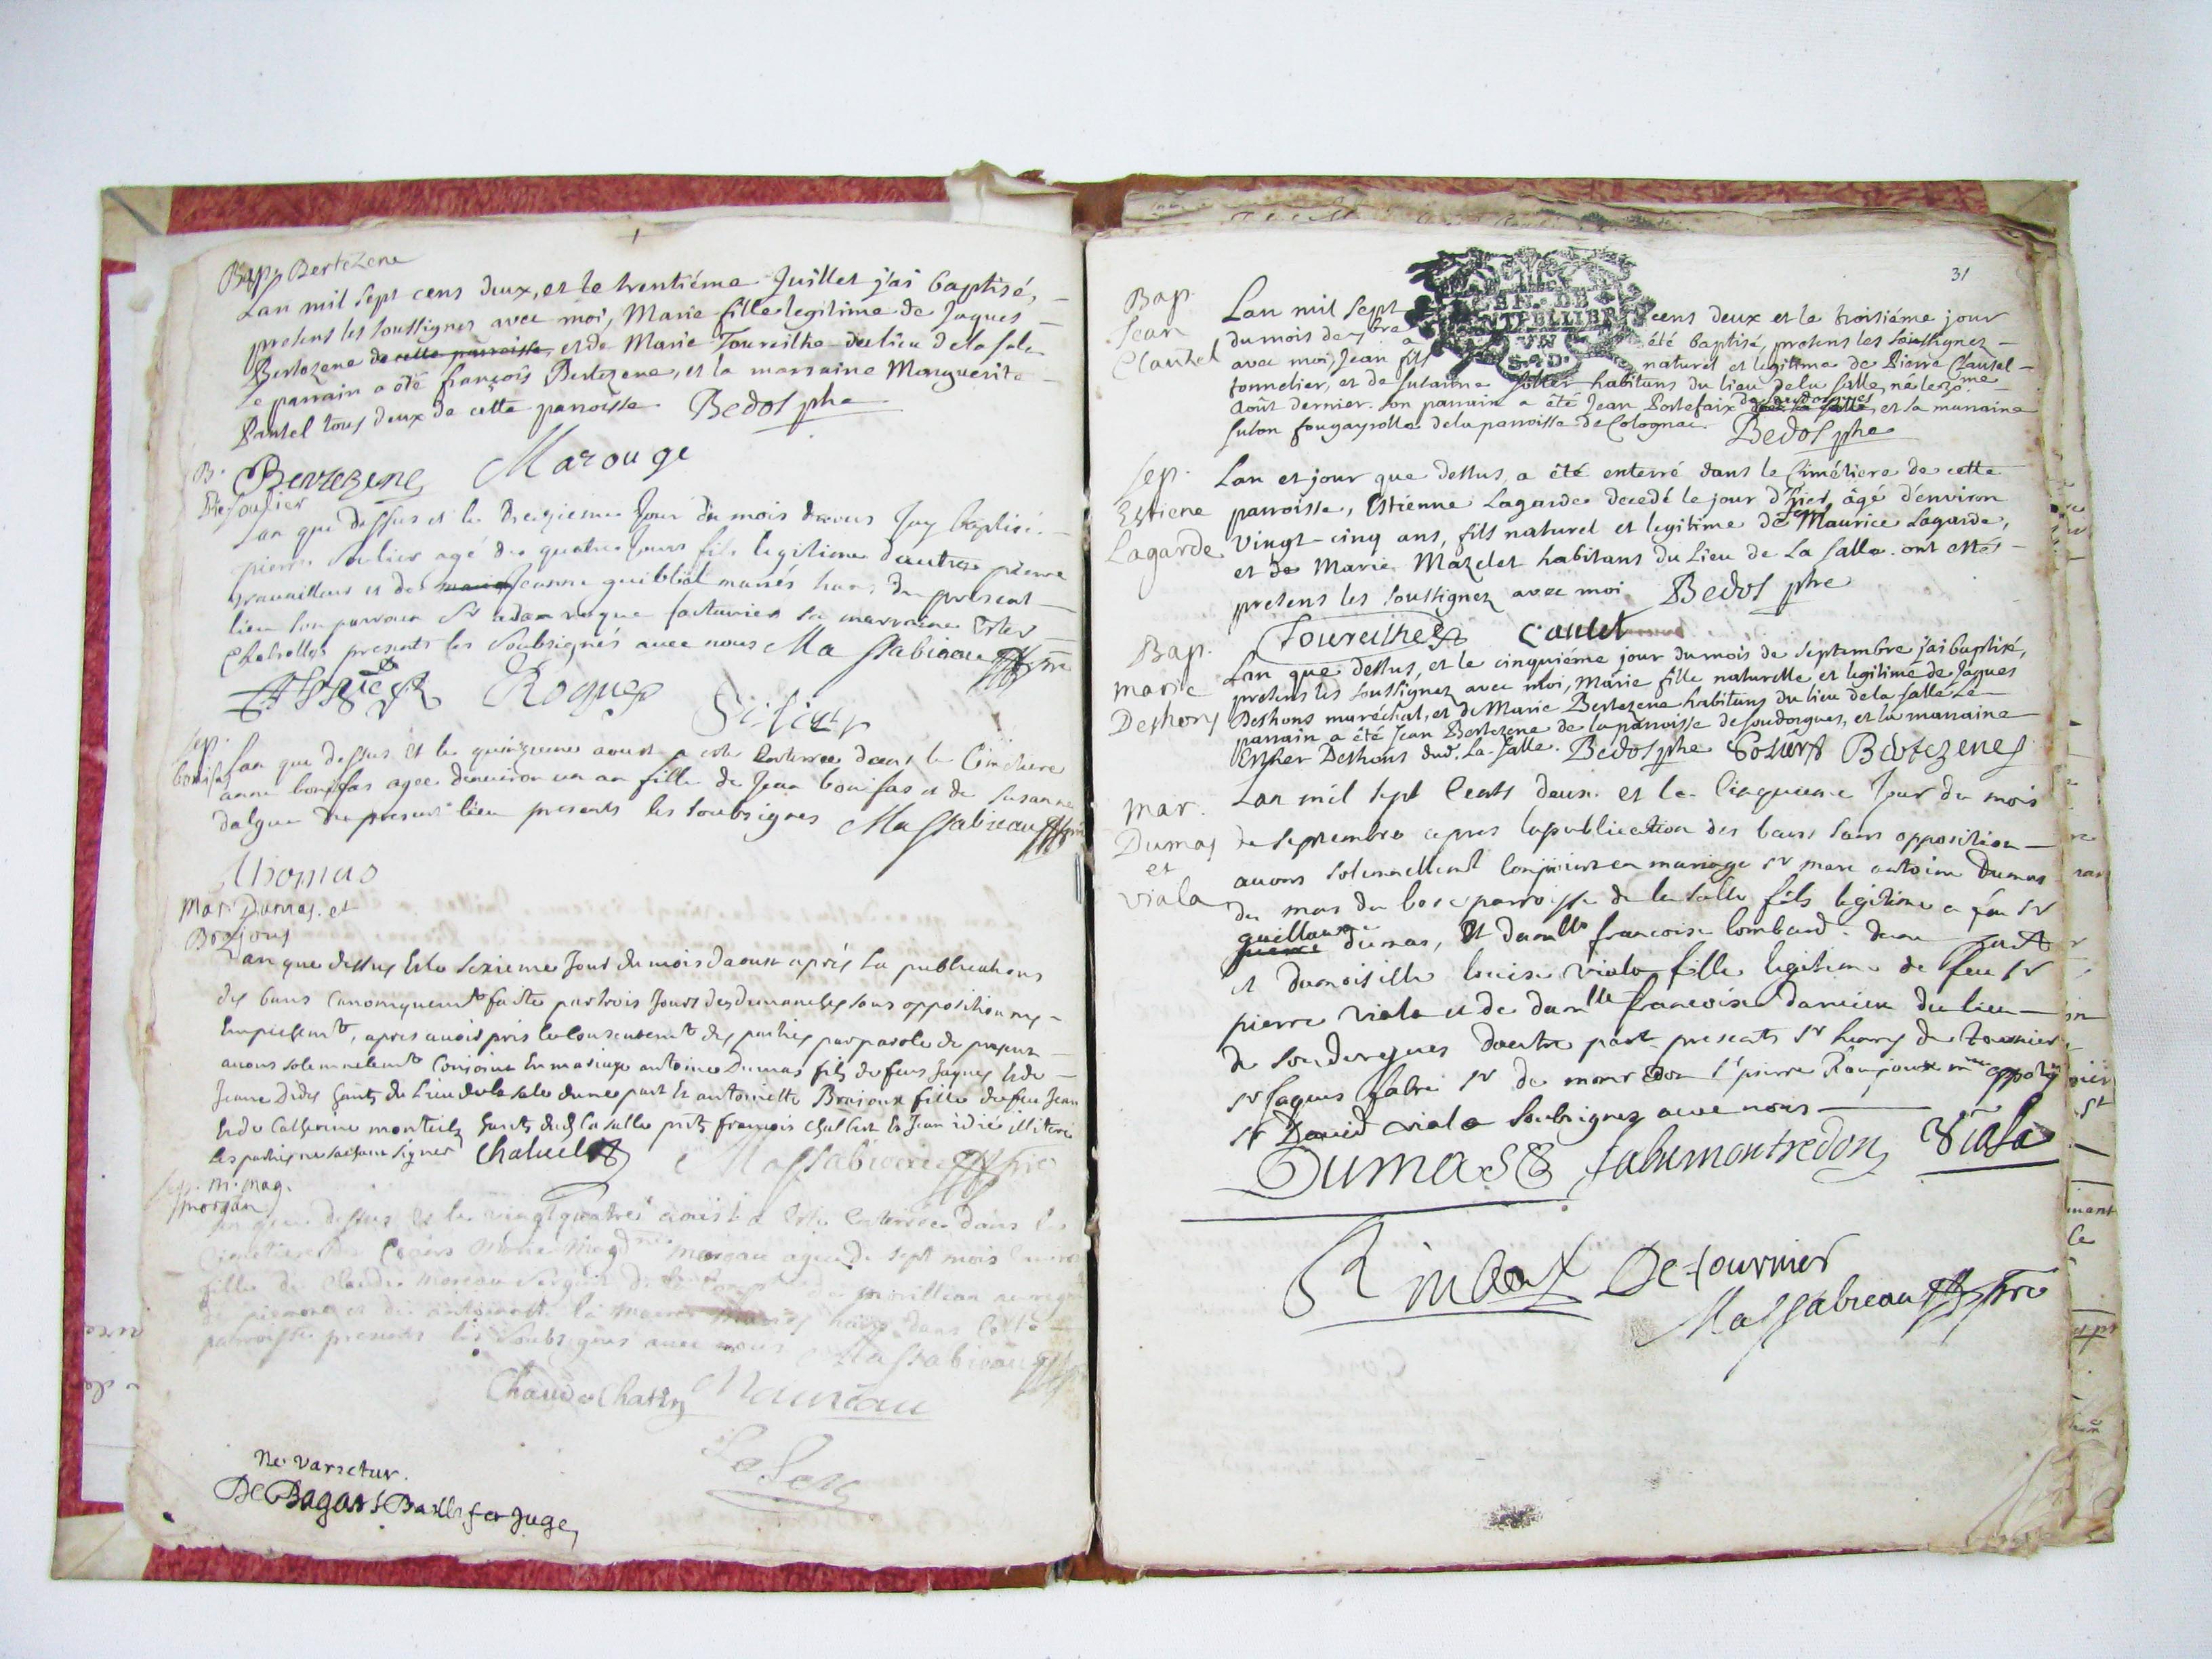 Bap. Bertezene
Lan mil sept cens deux, et le trentiéme Juillet j'ai baptisé,
presens les soussignez avec moi, Marie fille legitime de Jaques
Bertezene de cette parroisse, et de Marie Toureilhe du lieu de la Sale
Le parrain a été françois Bertezene, et la marraine Marguerite
Pantel tous deux de cette parroisse. Bedos ptre
Bertezene Marouge
B.
P. Soulier
Lan que dessus et le treizieme Jour du mois daous Jay baptisé
pierre Soulier agé de quatre Jours fils legitime dautre pierre
travailleur et de Jeanne guibbal mariés du present
lieu son parrain Sr adam rogue facturier sa marraine
presents les Soubsignés avec nous Massabieau ptre
Rogues
Sep.
bonifas
Lan que dessus et le quinzieme aoust a esté Enterrée dans le Cimetiere
anne bonifas agée denviron un an fille de Jean bonifas et de Susanne
dalgue du present lieu presents les soubsignes Massabieau ptre
Thomas
Mar. Dumas. et
Brajous
Lan que dessus Et le sezieme Jour du mois daoust aprés la publications
des bans Canoniquemt faite par trois Jours des dimanches sans opposition ny
Empechemt, apres avoir pris le Consentemt des parties par parole de present
avons solemnelemt Conjoint En mariage antoine Dumas fils de feu Jaques Et de
Jeane Dides habts du Lieu de la sale dune part Et antoinette Brajoux fille de feu Jean
Et de Catherine monteils habts dud la salle pnts françois Et Jean illiteré
Les parties ne sachant signer Massabieau ptre
Sep. m. mag.
morgan
Lan que dessus Et le vingt quatre aoust a Este Enterrée dans le
Cimetiere Marie Magdne moreau agée de sept mois
fille de Claude moreau Sergent de la Comp de
parroisse presents les Soubsignes avec nous Massabieau ptre
Maureau
Ne varietur.
De Bagars Baillif et Juge
31
Bap.
Jean
Clauzel
Lan mil sept cens deux et le troisiéme jour
du mois de 7bre a été baptisé, presens les soussignez
avec moi, Jean fils naturel et legitime de Pierre Clauzel
tonnelier, et de Susanne Soliér habitans du lieu de la Salle, né le 30me
Août dernier. son parrain a été Jean Portefaix de soudorgues et sa marraine
Suson fougayrolle de la parroisse de Colognac. Bedos ptre
GEN. DE
MONTPELLIER
UN
S. 4. D.
Sep.
Estiene
Lagarde
Lan et jour que dessus, a été enterré dans le Cimétiere de cette
parroisse, Estienne Lagarde decedé le jour d'hier, âgé d'environ
vingt-cinq ans, fils naturel et legitime de feu Maurice Lagarde,
et de Marie Mazelet habitans du Lieu de La Salle. ont esté
presens les soussignez avec moi. Bedos ptre
Toureilhe Caulet
Bap.
Marie
Deshons
Lan que dessus, et le cinquiéme jour du mois de Septembre j'ai baptisé,
presens les soussignez avec moi, Marie fille naturelle et legitime de Jaques
Deshons maréchal, et de Marie Bertezene habitans du lieu de la salle. Le
parrain a été Jean Bertezene de la parroisse de soudorgues, et la marraine
Esther Deshons dud. La Salle. Bedos ptre Soliér Bertezene
Mar.
Dumas
et
Viala
Lan mil sept Cents deux et le Cinquieme Jour du mois
de Septembre apres la publication des bans sans opposition
avons solennellemt Conjoint en mariage sr marc antoine Dumas
du mas du bosc parroisse de la salle fils legitime a feu sr
guillaume pierre dumas, Et damlle francoise lombard dune part
et damoiselle louise viala fille legitime de feu sr
pierre viala et de damlle francoise damien du lieu
de soudorgues dautre part presents sr henry de tournier
sr Jaques fabre sr de montredon Sr pierre Ranjoux me appore
sr David viala soubsignez avec nous
Dumas fabre montredon Viala
De tournier
Massabieau ptre